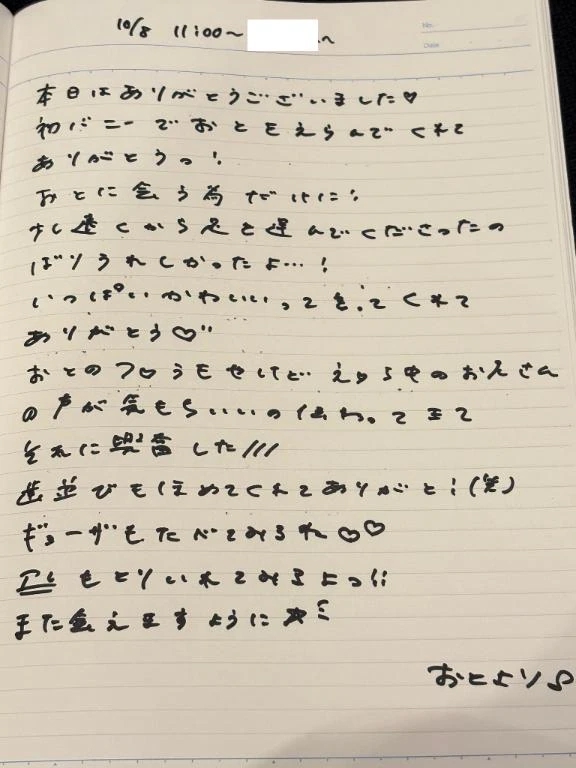 No.
Date
10/8 11:00〜
本日はありがとうございました♡
初バニーでおとをえらんでくれて
ありがとうっ!
おとに会う為だけに!
遠くから足を運んでくださったの
ばりうれしかったよ…!
いっぱいかわいいってをってくれて
ありがとう♡"
おとのフロうもせして お兄さん
の声が気もちいいの伝わってきて
それに興奮した///
歯並びもほめてくれてありがと!(笑)
ギョーザもたべてみるね♡♡
もとりいれてみるよっ!!
また会えますように☆ミ
おとより